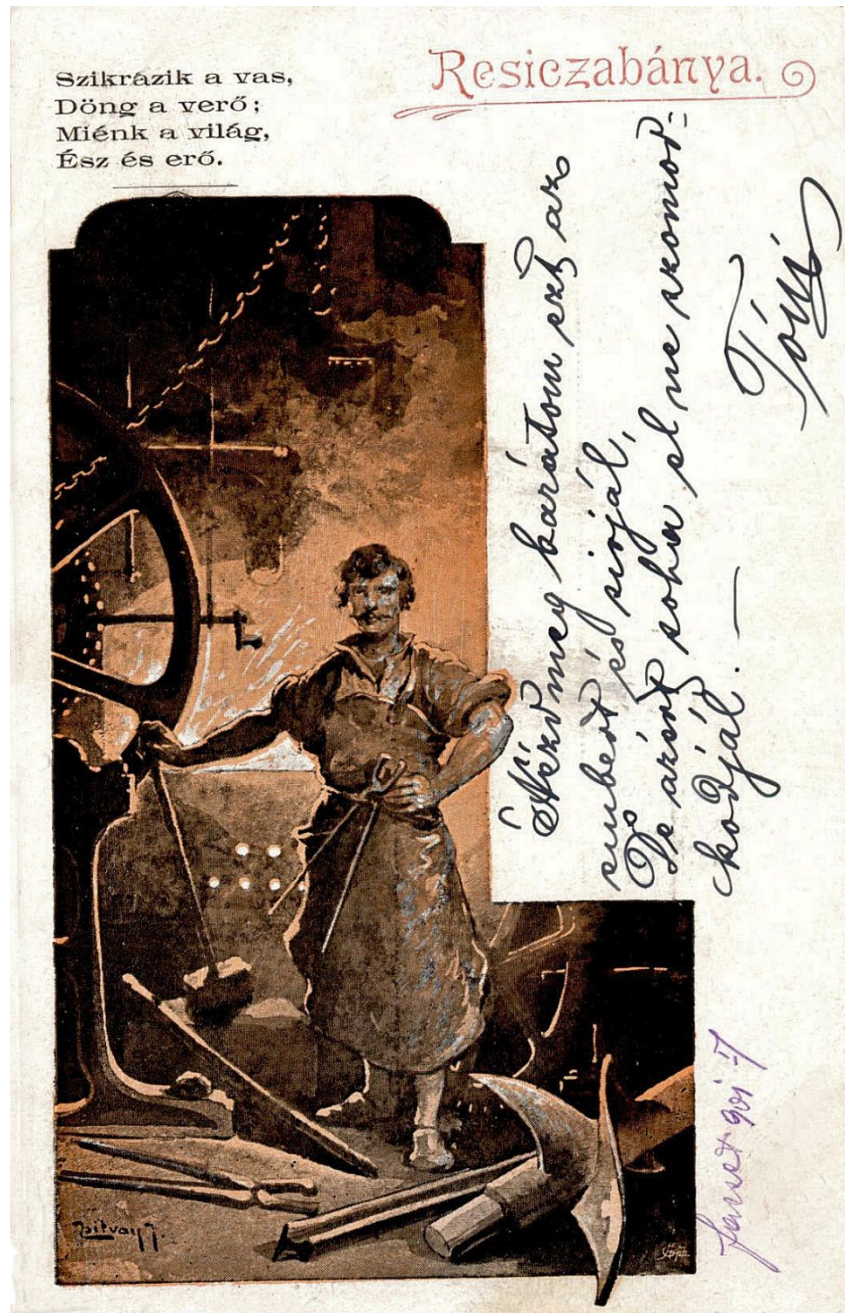 Szikrázik a vas,
Döng a verő;
Miénk a világ,
Ész és erő.
Resiczabánya.
Nézd meg barátom ezt az
embert és sirjál,
De azért soha el ne szomod=
kodjál. —
Tóni